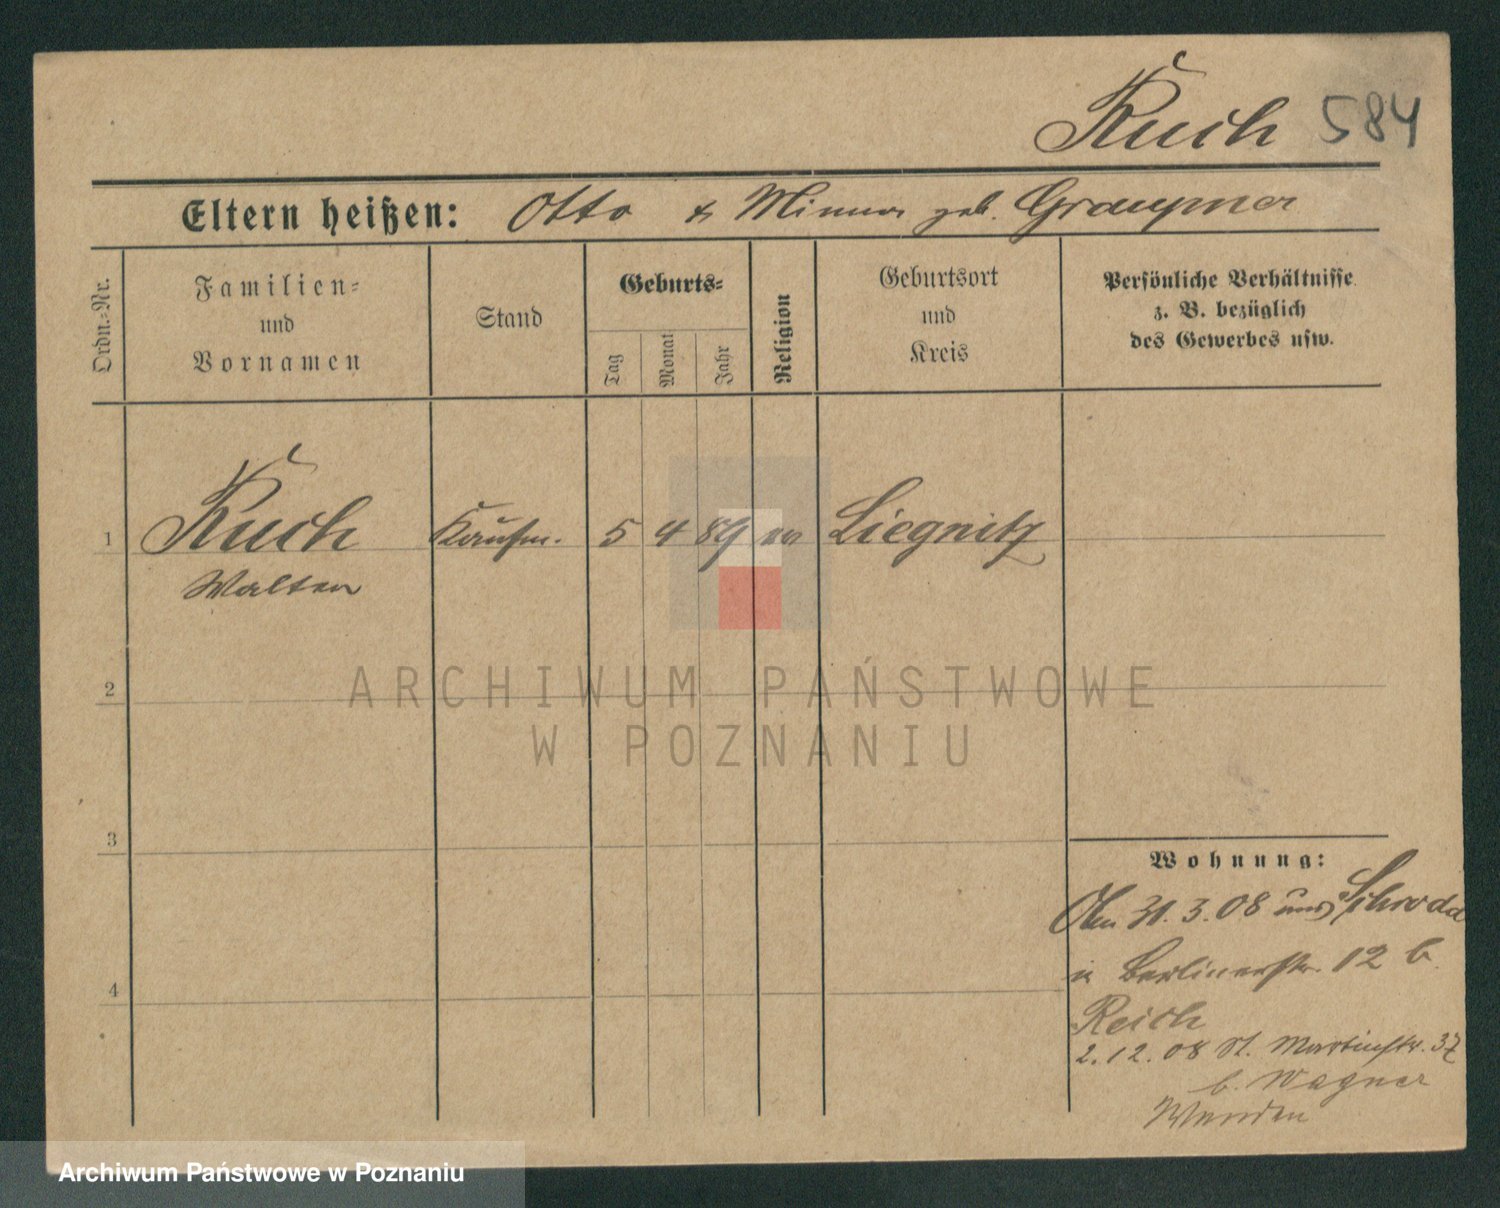 Kuch 584
Eltern heißen: Otto & Minna geb. Graupner
Ordn.-Nr.
Familien-
und
Vornamen
Stand
Geburts-
Tag
Monat
Jahr
Religion
Geburtsort
und
Kreis
Persönliche Verhältnisse
z. B. bezüglich
des Gewerbes usw.
1 Kuch Kaufm. 5 4 89 Liegnitz
Walter
2
ARCHIWUM PAŃSTWOWE
W POZNANIU
3
Wohnung:
31.3.08 Schroda
Berlinerstr. 12 b.
Reich
4
2.12.08 St. Martinstr. 37
b. Wagner
Wenden
Archiwum Państwowe w Poznaniu